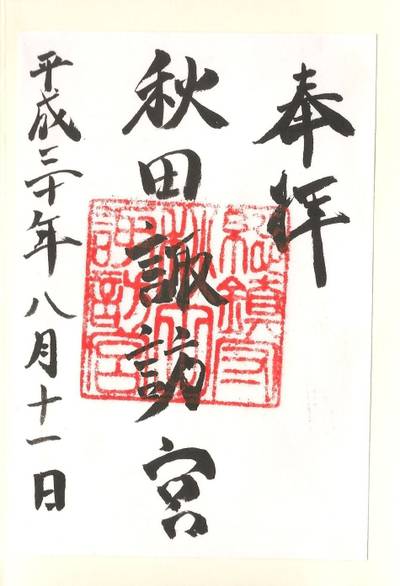 奉拝
秋田諏訪宮
平成三十年八月十一日
総鎮守
諏訪宮